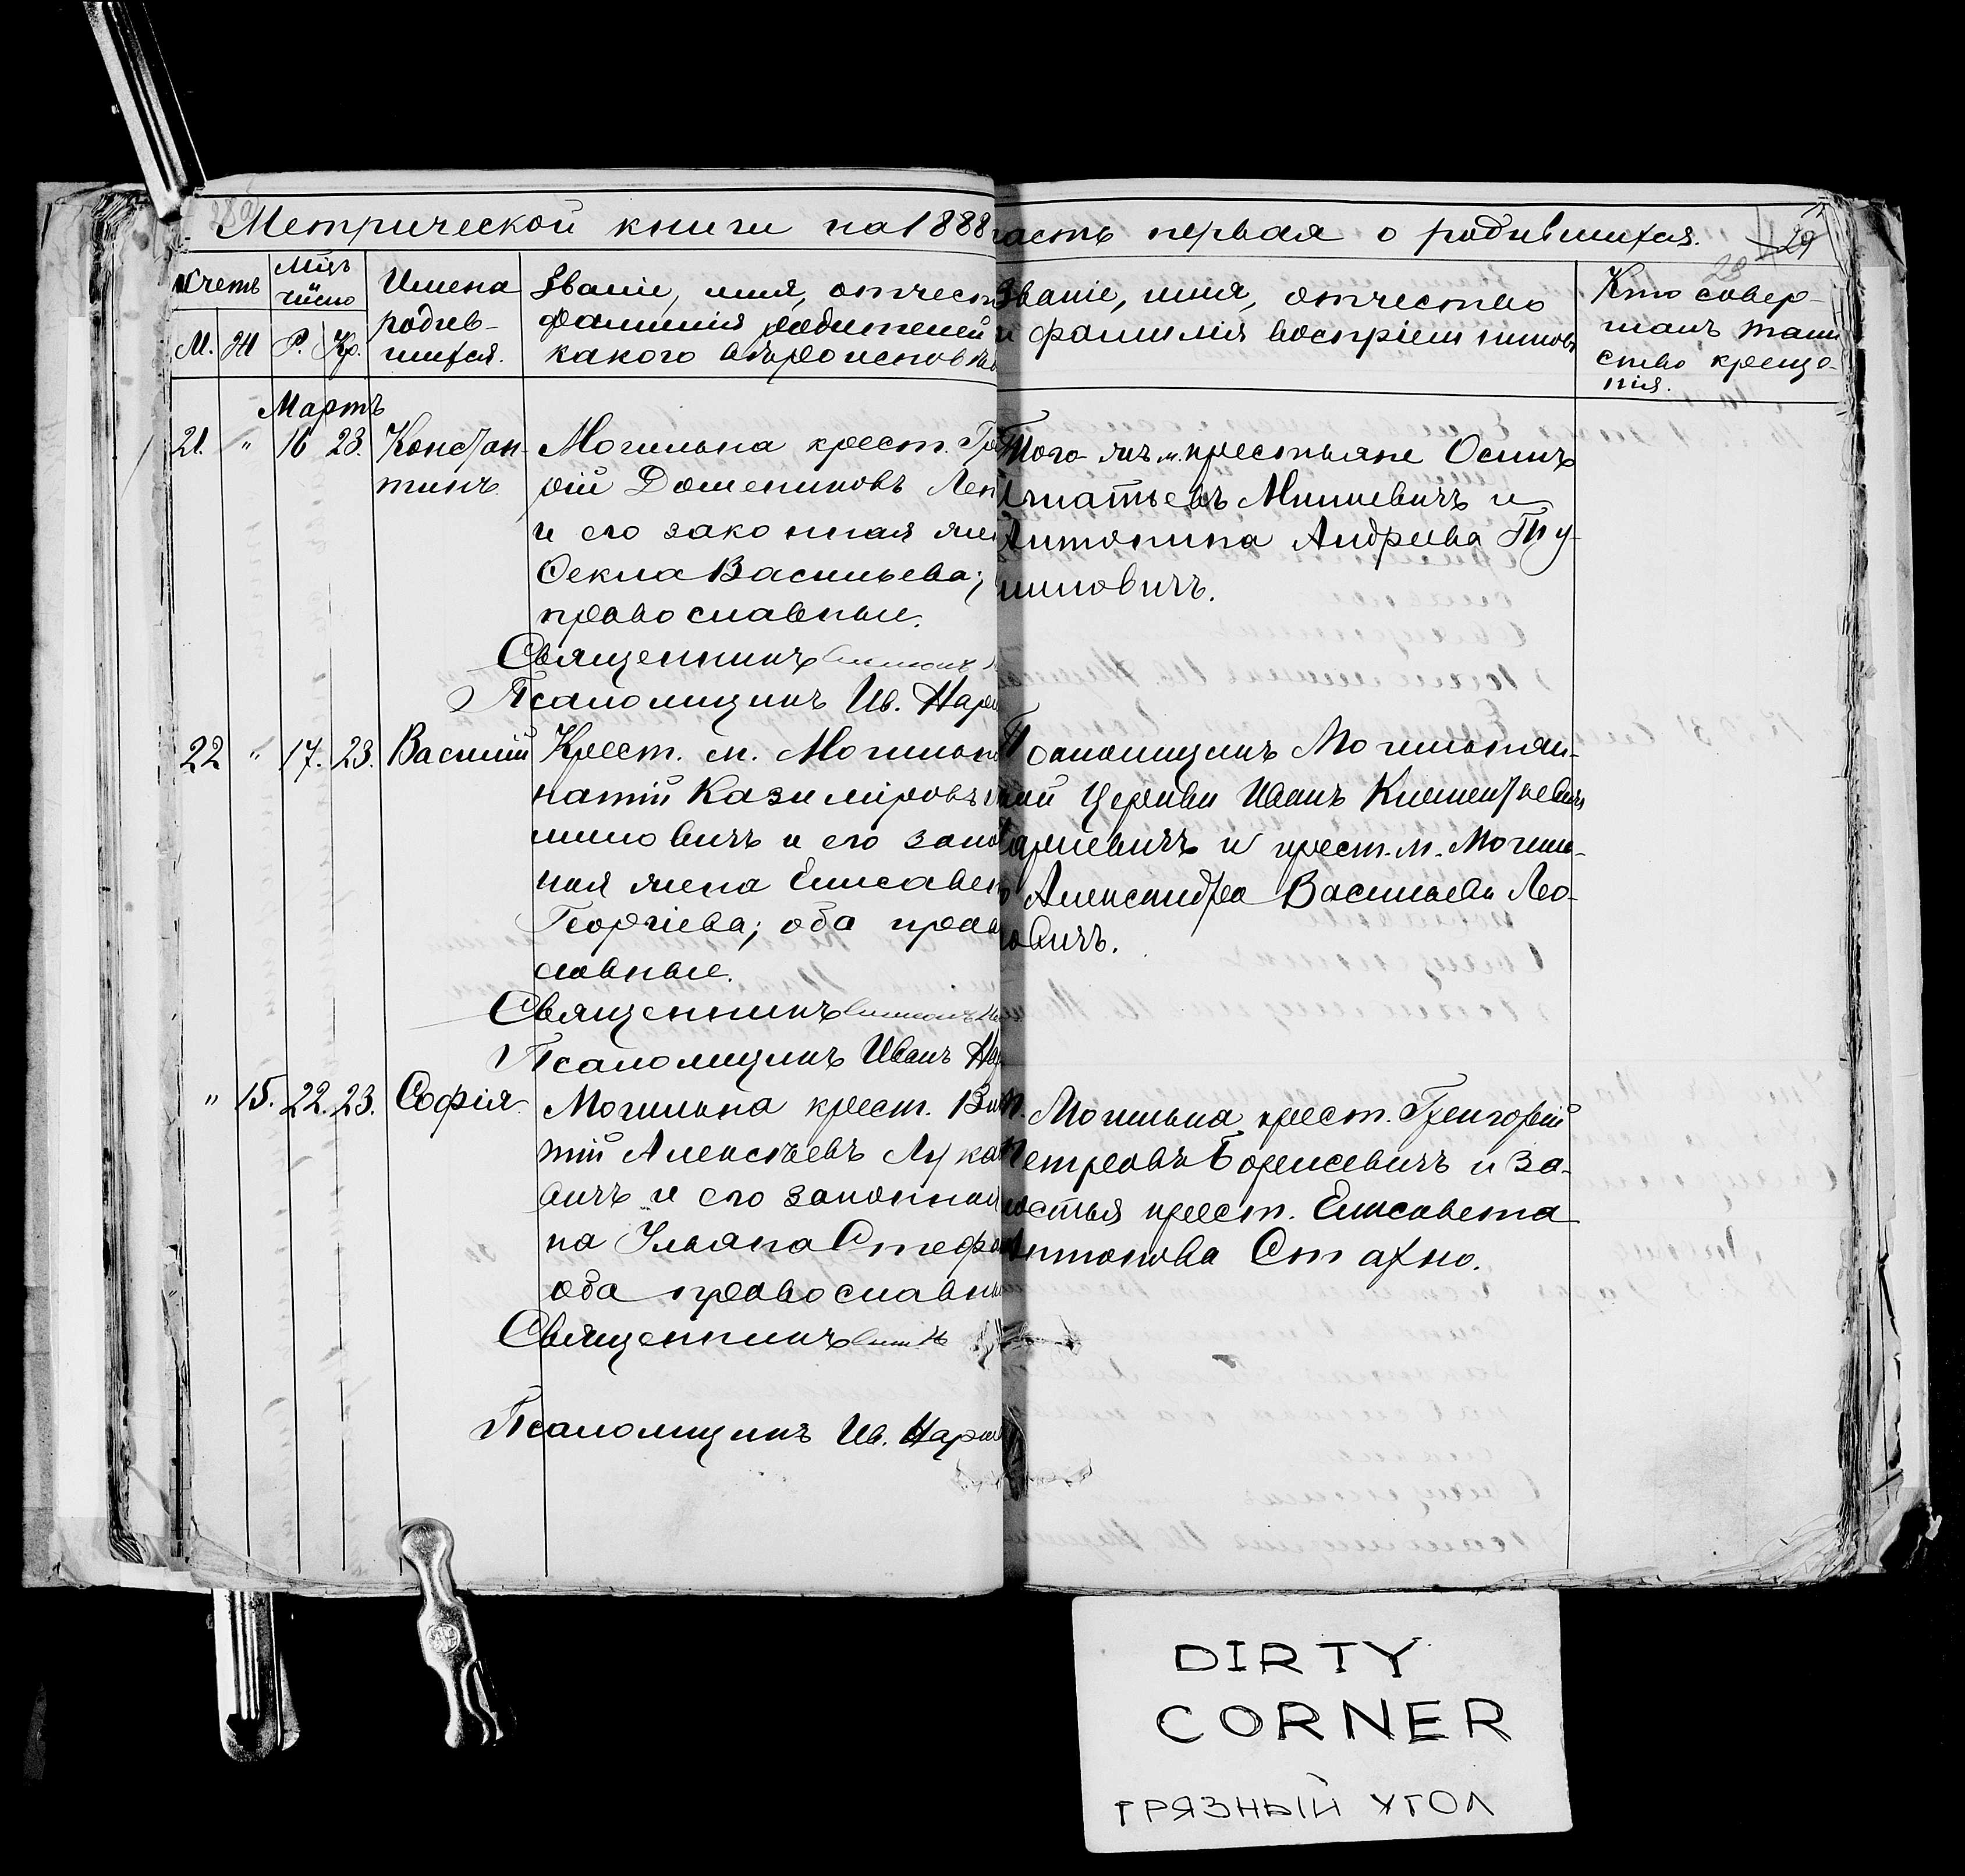 Метрической книги на 1888
часть первая о родившихся.
29
Счетъ
М.
Ж
Мцъ
число
Р.
Кр.
Имена
родив-
шихся.
Званіе, имя, отчест
фамилія родителей
какого вѣроисповѣ
Званіе, имя, отчество
и фамилія воспріемниковъ
Кто совер-
шалъ таин
ство креще-
нія.
Мартъ
21. " 16 23. Констан-
тинъ.
Могильна крест. Гри
рій Домениковъ Лен
и его законная же
Ѳекла Васильева;
православные.
Священникъ
Псаломщикъ Ив. Нарк
Того же м. крестьяне Осипъ
Игнатьевъ Мишевичъ и
Антонина Андреева Ту-
миловичъ.
22 " 17. 23. Василій
Крест. м. Могильн
натій Казиміровъ
миловичъ и его закон
ная жена Елисавет
Георгіева; оба право
славные.
Священникъ
Псаломщикъ Иванъ На
Псаломщикъ Могильнян-
кой Церкви Иванъ Климентьевичъ
аркевичъ и крест. м. Могиль-
Александра Васильева Лео-
овичъ.
" 15. 22. 23. Софія
Могильна крест. Ви
тій Алексѣевъ Лука
вичъ и его законная
на Ульяна Стефа
оба православн
Священникъ
Псаломщикъ Ив. Нарк
м. Могильна крест. Григорій
Петровъ Борисевичъ и За-
мостья крест. Елисавета
Антонова Стахно.
DIRTY
CORNER
ГРЯЗНЫЙ УГОЛ